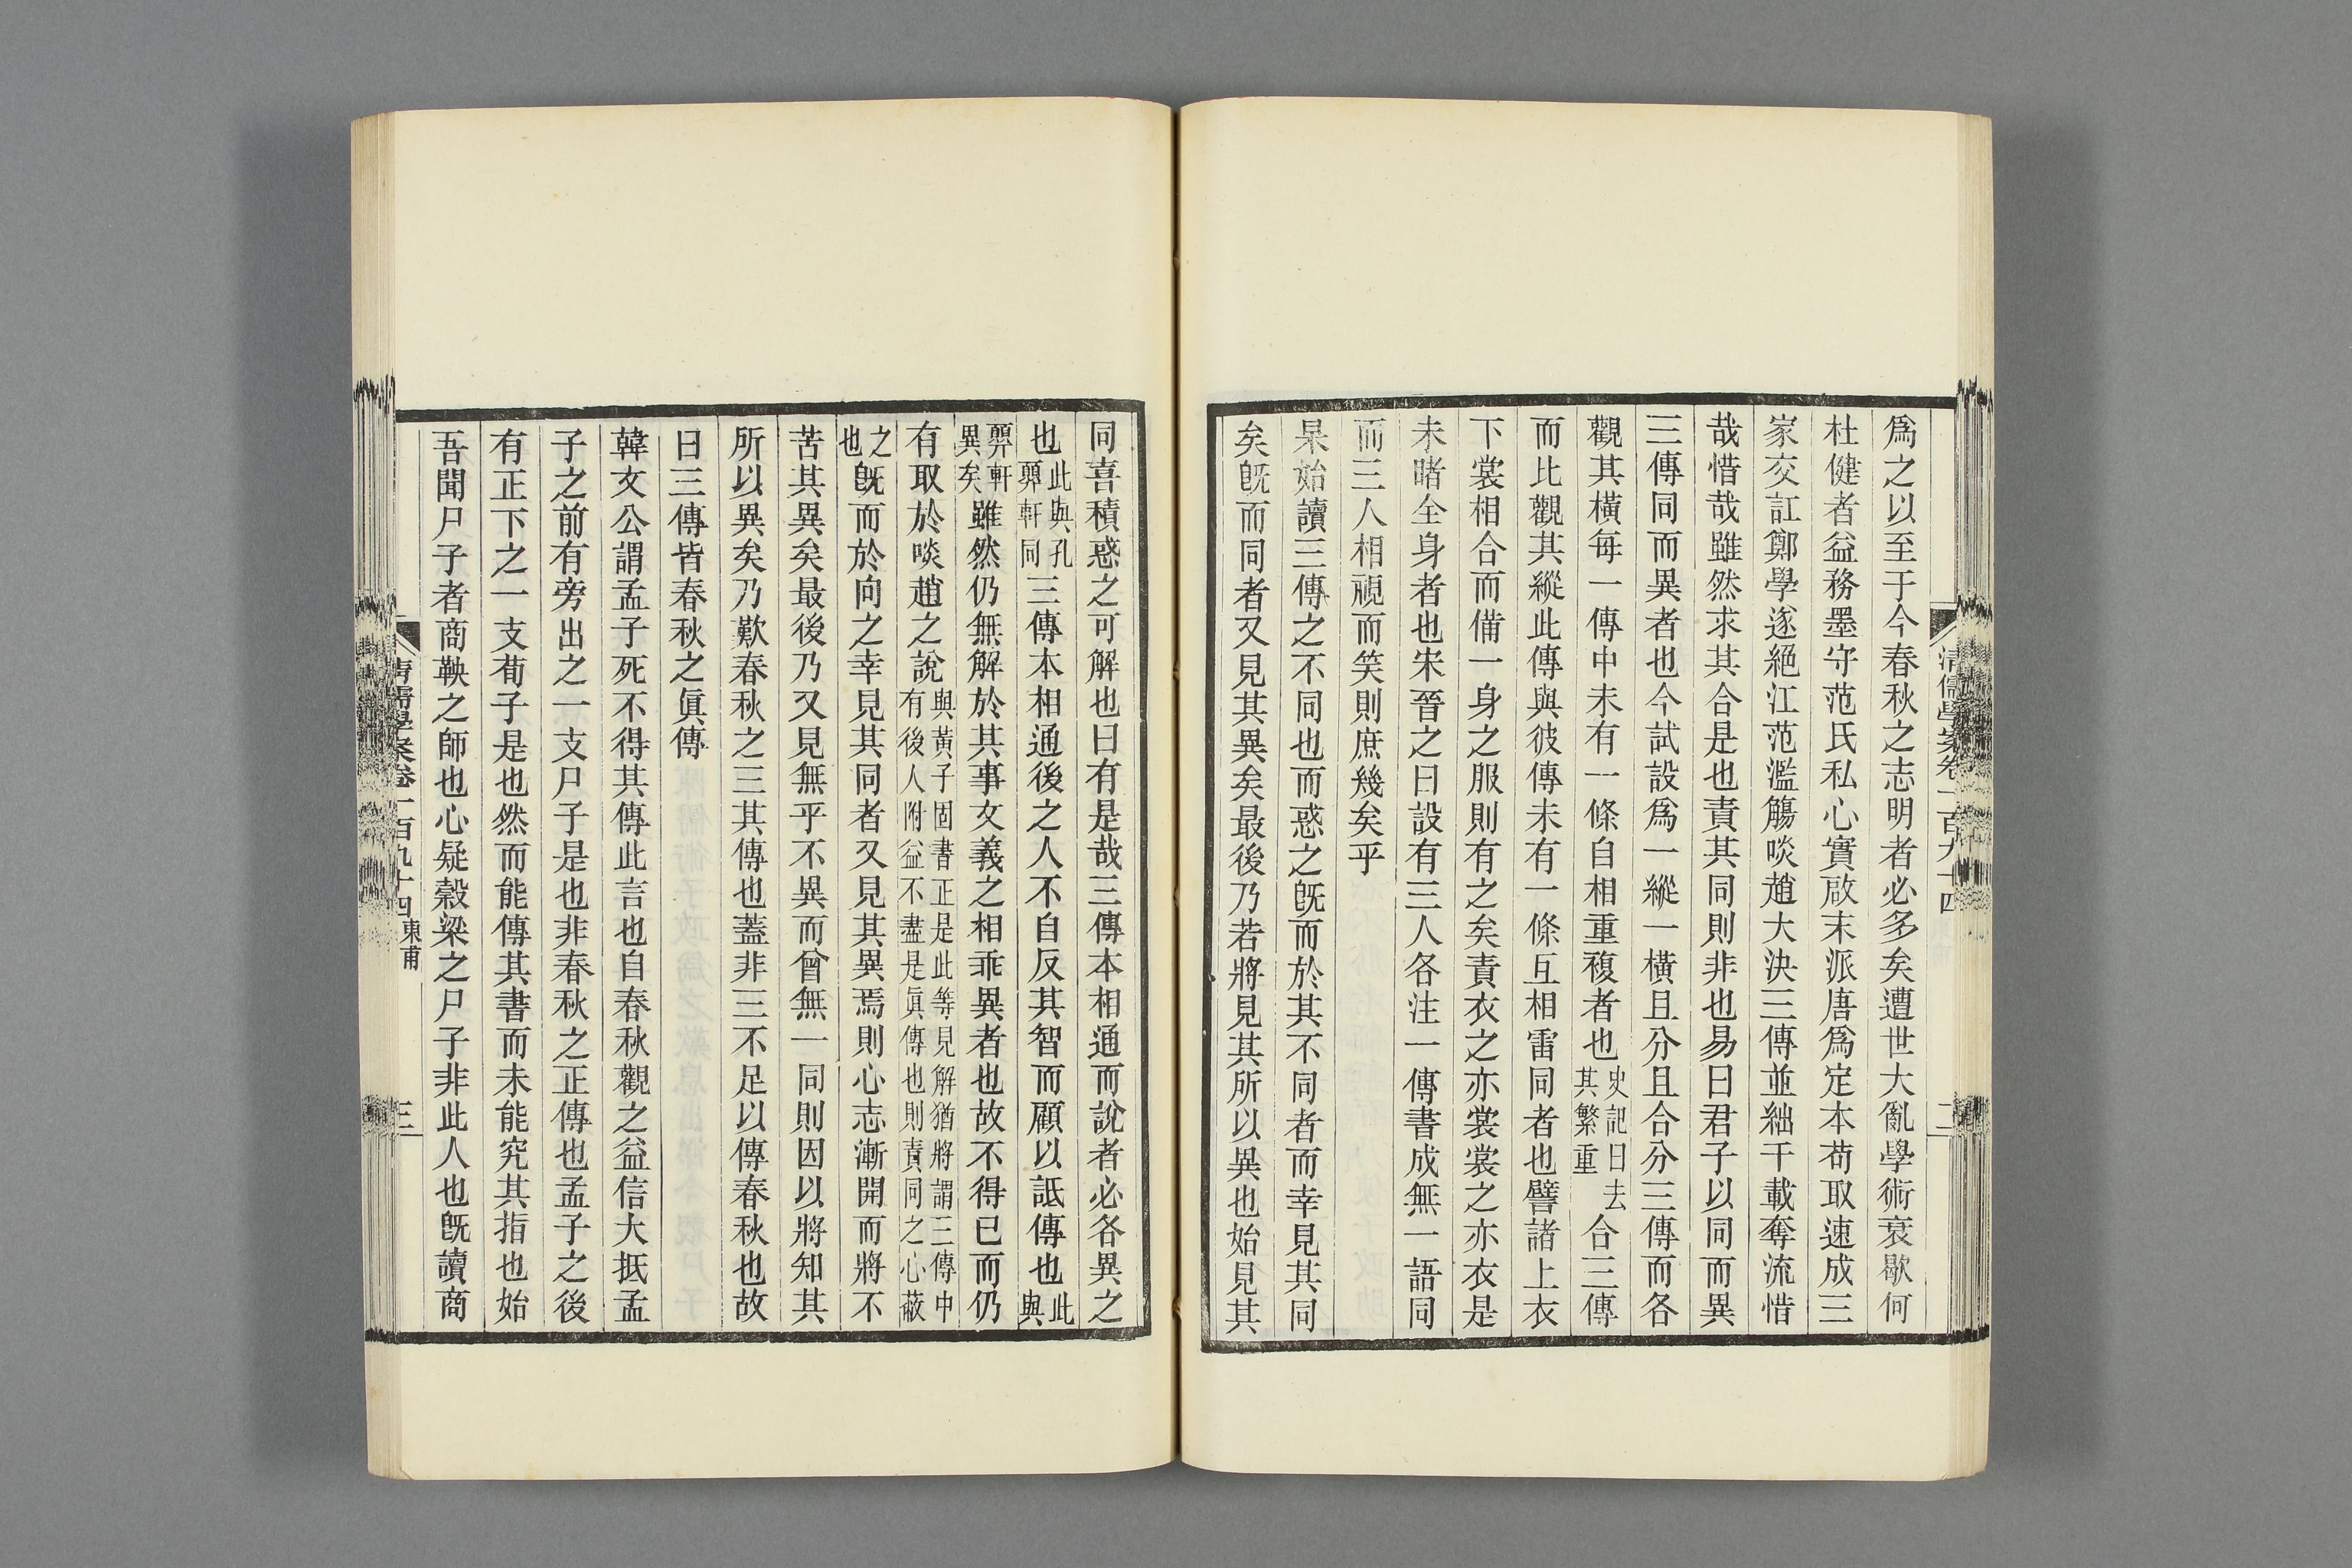 爲之以至于今春秋之志明者必多矣遭世大亂學術衰歇何
杜健者益務墨守范氏私心實啟末派唐爲定本苟取速成三
家交訌鄭學遂絕江范濫觴啖趙大決三傳並絀千載奪流惜
哉惜哉雖然求其合是也責其同則非也易曰君子以同而異
三傳同而異者也今試設爲一縱一橫且分且合分三傳而各
觀其橫每一傳中未有一條自相重複者也史記曰去其繁重合三傳
而比觀其縱此傳與彼傳未有一條互相雷同者也譬諸上衣
下裳相合而備一身之服則有之矣責衣之亦裳裳之亦衣是
未睹全身者也宋晉之曰設有三人各注一傳書成無一語同
而三人相視而笑則庶幾矣乎
杲始讀三傳之不同也而惑之旣而於其不同者而幸見其同
矣旣而同者又見其異矣最後乃若將見其所以異也始見其
清儒學案卷一百九十四 二
同喜積惑之可解也曰有是哉三傳本相通而說者必各異之
也此與孔顨軒同三傳本相通後之人不自反其智而顧以詆傳也此與
顨軒異矣雖然仍無解於其事文義之相乖異者也故不得已而仍
有取於啖趙之說與黃子固書正是此等見解猶將謂三傳中有後人附益不盡是眞傳也則責同之心蔽
之也旣而於向之幸見其同者又見其異焉則心志漸開而將不
苦其異矣最後乃又見無乎不異而曾無一同則因以將知其
所以異矣乃歎春秋之三其傳也蓋非三不足以傳春秋也故
曰三傳皆春秋之眞傳
韓文公謂孟子死不得其傳此言也自春秋觀之益信大抵孟
子之前有旁出之一支尸子是也非春秋之正傳也孟子之後
有正下之一支荀子是也然而能傳其書而未能究其指也始
吾聞尸子者商鞅之師也心疑穀梁之尸子非此人也旣讀商
清儒學案卷一百九十四 東甫 三